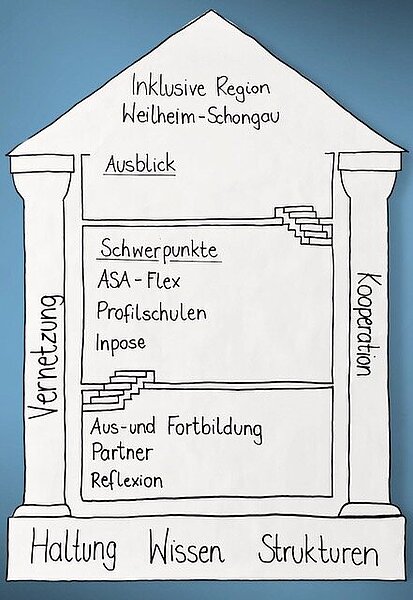 Inklusive Region
Weilheim-Schongau
Ausblick
Schwerpunkte
ASA-Flex
Profilschulen
Inpose
Vernetzung
Kooperation
Aus- und Fortbildung
Partner
Reflexion
Haltung Wissen Strukturen